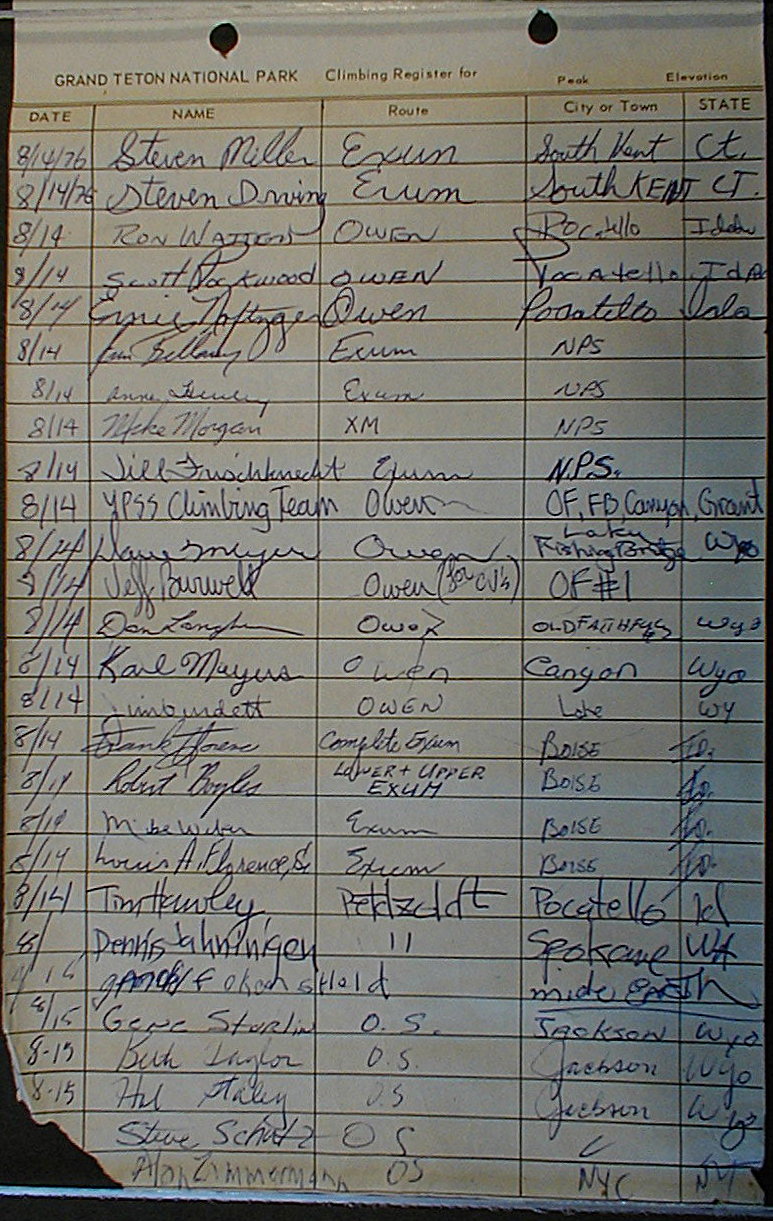 GRAND TETON NATIONAL PARK Climbing Register for Peak Elevation
DATE NAME Route City or Town STATE
8/14/76 Steven Miller Exum South Kent Ct.
8/14/76 Steven Irving Exum South KENT CT.
8/14 RON WATTERS OWEN POCATELLO Idaho
8/14 Scott Rockwood OWEN Pocatello Ida
8/14 Ernie Naftzger Owen Pocatello Ida
8/14 Jim Bellamy Exum NPS
8/14 Anne Exum NPS
8/14 Mike Morgan XM NPS
8/14 Jill Frischknecht Exum N.P.S.
8/14 YPSS Climbing Team Owen OF, FB, Canyon, Grant
Lake
8/14 Dave Meyer Owen Fishing Bridge Wyo
8/14 Jeff Burwell Owen (for CU's) OF #1
8/14 Don Owen OLD FAITHFUL Wyo
8/14 Karl Mayers Owen Canyon Wyo
8/14 Jim OWEN Lake WY
8/14 Frank Florence Complete Exum BOISE ID.
8/14 Robert Boyles LOWER + UPPER EXUM BOISE ID.
8/14 Mike Weber Exum BOISE ID.
8/14 Louis A. Florence, Sr. Exum BOISE ID.
8/14 Tim Hawley Petdzoldt Pocatello Id
8/ Dennis Jahningen 11 Spokane WA
/15 gandlf okenshield midel EARTH
8/15 Gene Sturlin O.S. JACKSON Wyo
8-15 Beth Taylor O.S. Jackson Wyo
8-15 Hal Staley O.S Jackson Wyo
Steve Schutz O S
Alan Zimmermann OS NYC NY